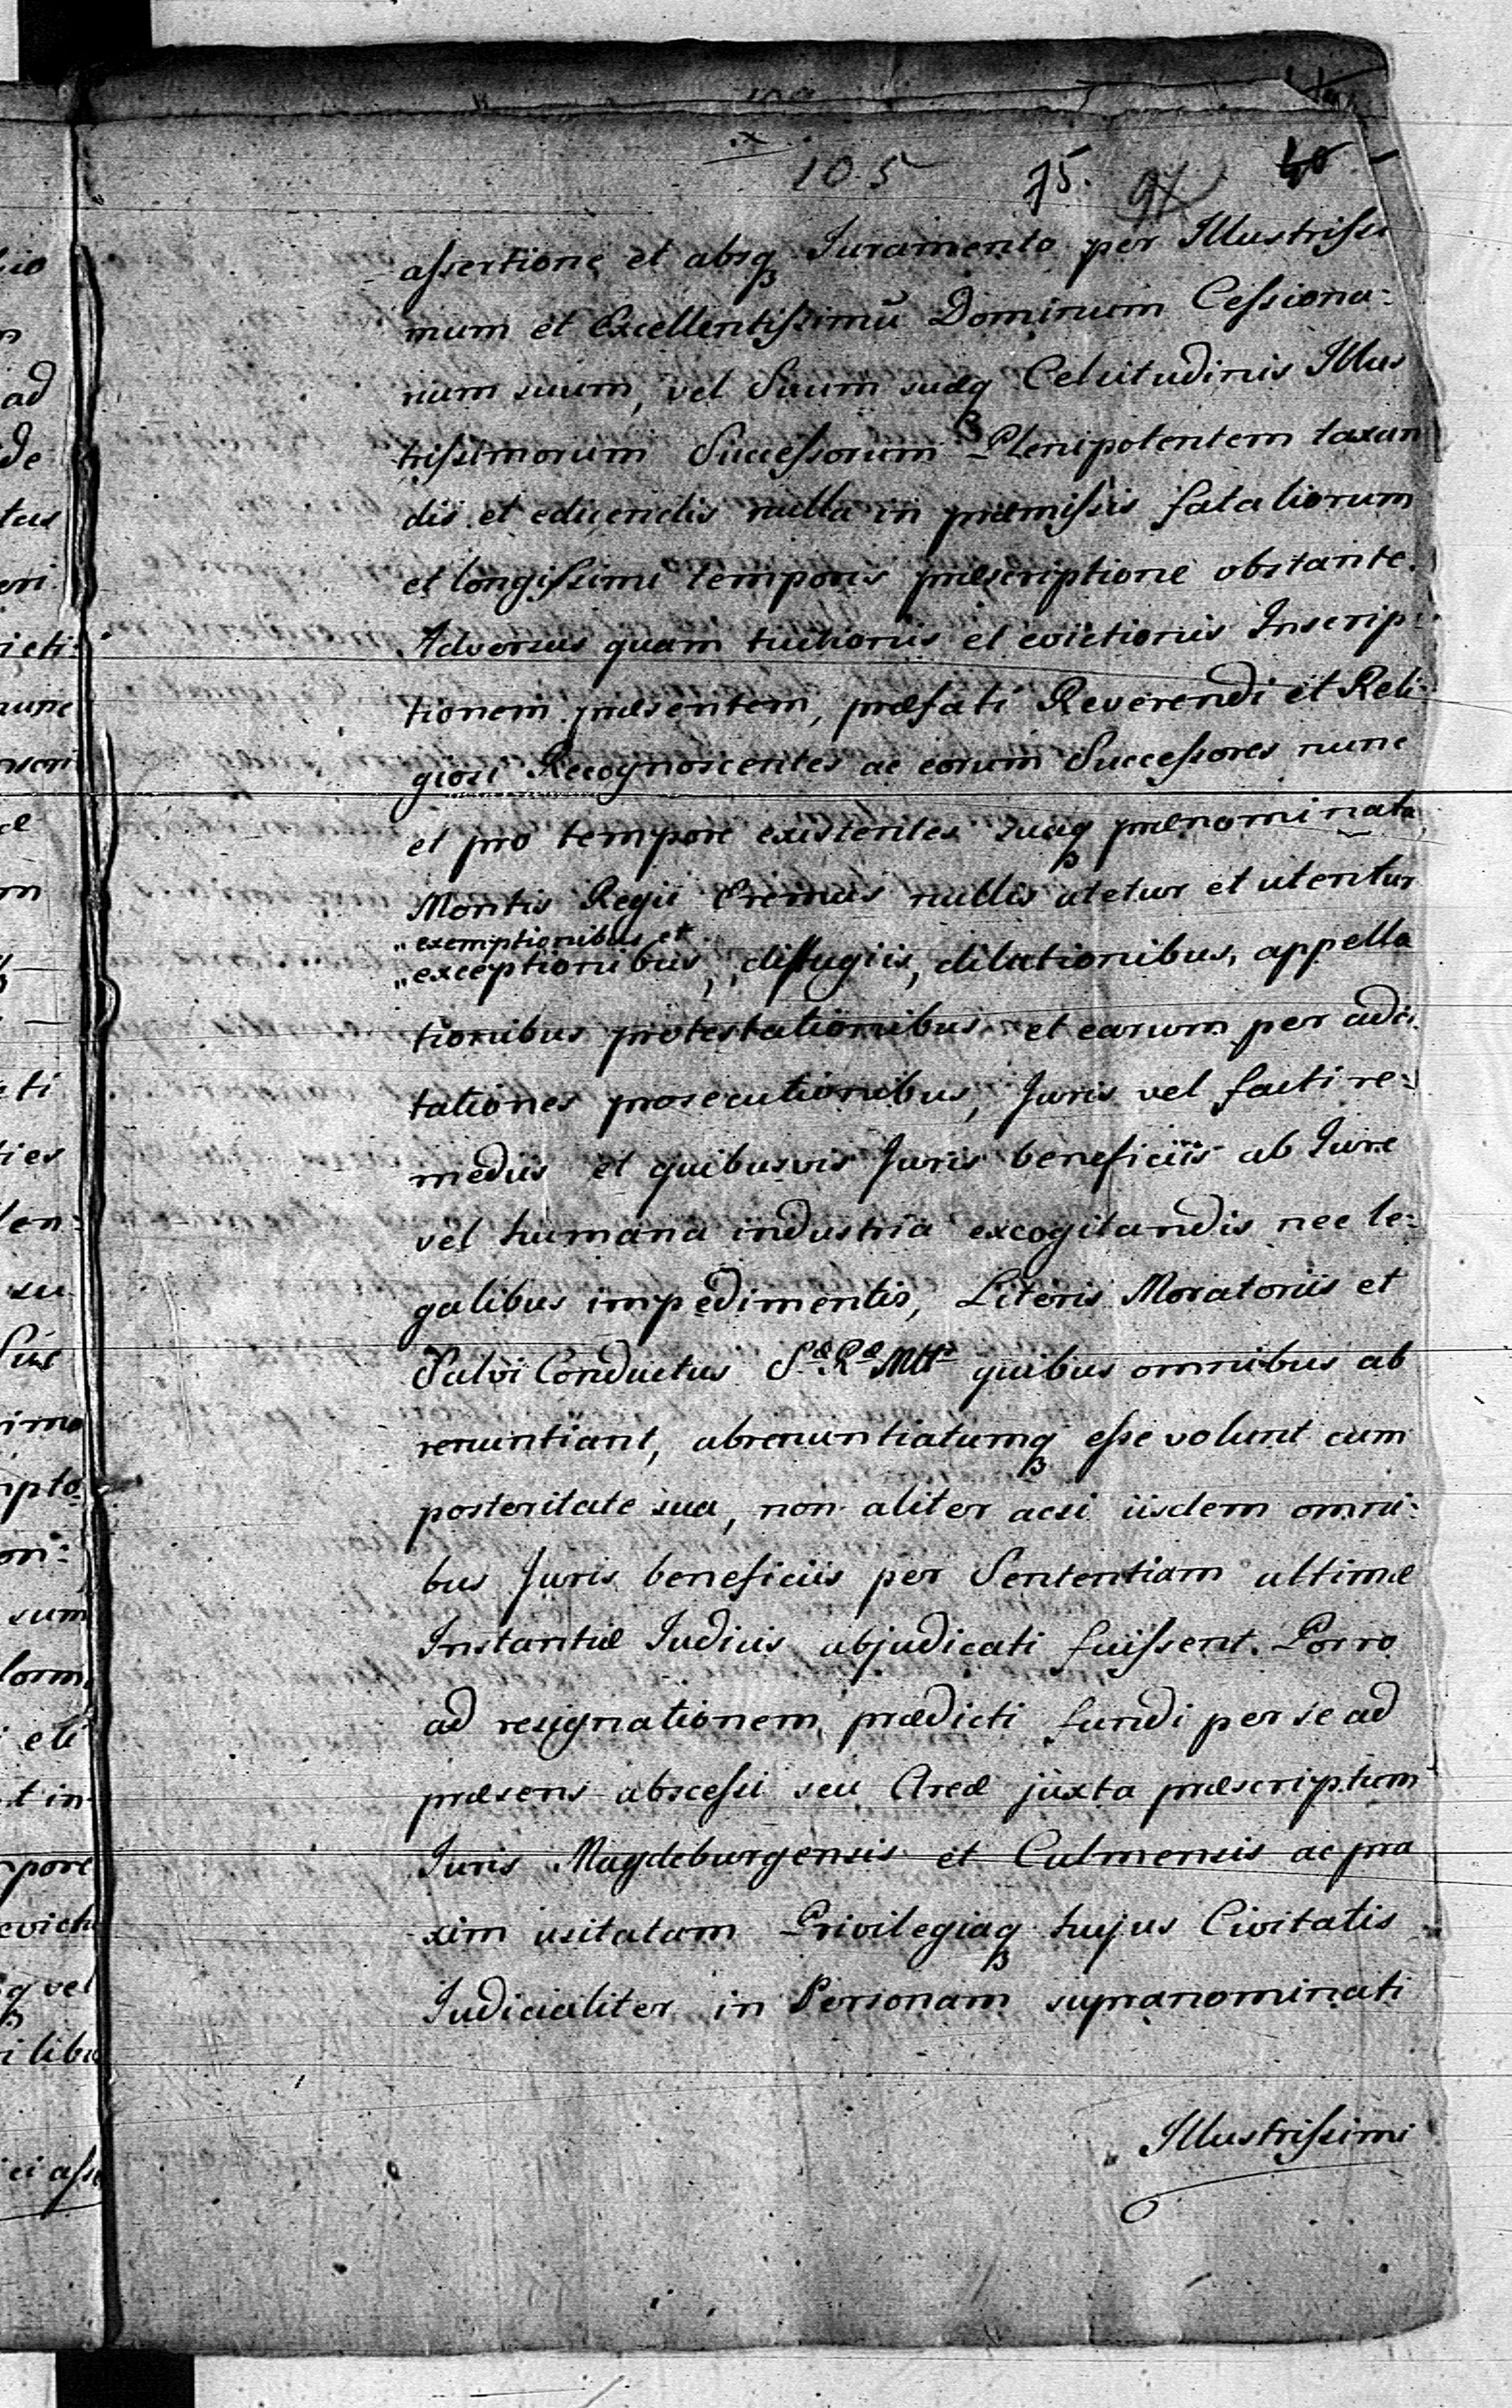 10.5 75. 97 40
assertione et absq3 Iuramento per Illustrissi
mum et Excellentissimū Dominum Cessiona-
rium suum, vel Suum suaq3 Celsitudinis Illus
trissimorum Successorum Plenipotentem taxan
dis et educendis nulla in præmissis fataliorum
et longissimi temporis præscriptione obstante.
Adversus quam tuitionis et evictionis Inscrip-
tionem præsentem, præfati Reverendi et Reli-
giosi Recognoscentes ac eorum Successores nunc
et pro tempore existentes suaq3 prænominata
Montis Regii Eremus nullis utetur et utentur
„exemptionibus et
„exceptionibus, diffugiis, dilationibus, appella
tionibus protestationibus et earum per adci
tationes prosecutionibus, Juris vel facti re-
mediis et quibusvis Juris beneficiis ab Iure
vel humana industria excogitandis nec le-
galibus impedimentis, Literis Moratoriis et
Salvi Conductus S.æ R.æ Mttis quibus omnibus ab
renuntiant, abrenuntiatumq3 esse volunt cum
posteritate sua, non aliter acsi iisdem omni-
bus Juris beneficiis per Sententiam ultimæ
Instantiæ Iudiciis abjudicati fuissent. Porro
ad resignationem prædicti fundi per se ad
præsens abscessi seu Areæ juxta præscriptum
Iuris Magdeburgensis et Culmensis ac pra
xim usitatam Privilegiaq3 hujus Civitatis
Iudicialiter in Personam supranominati
Illustrissimi